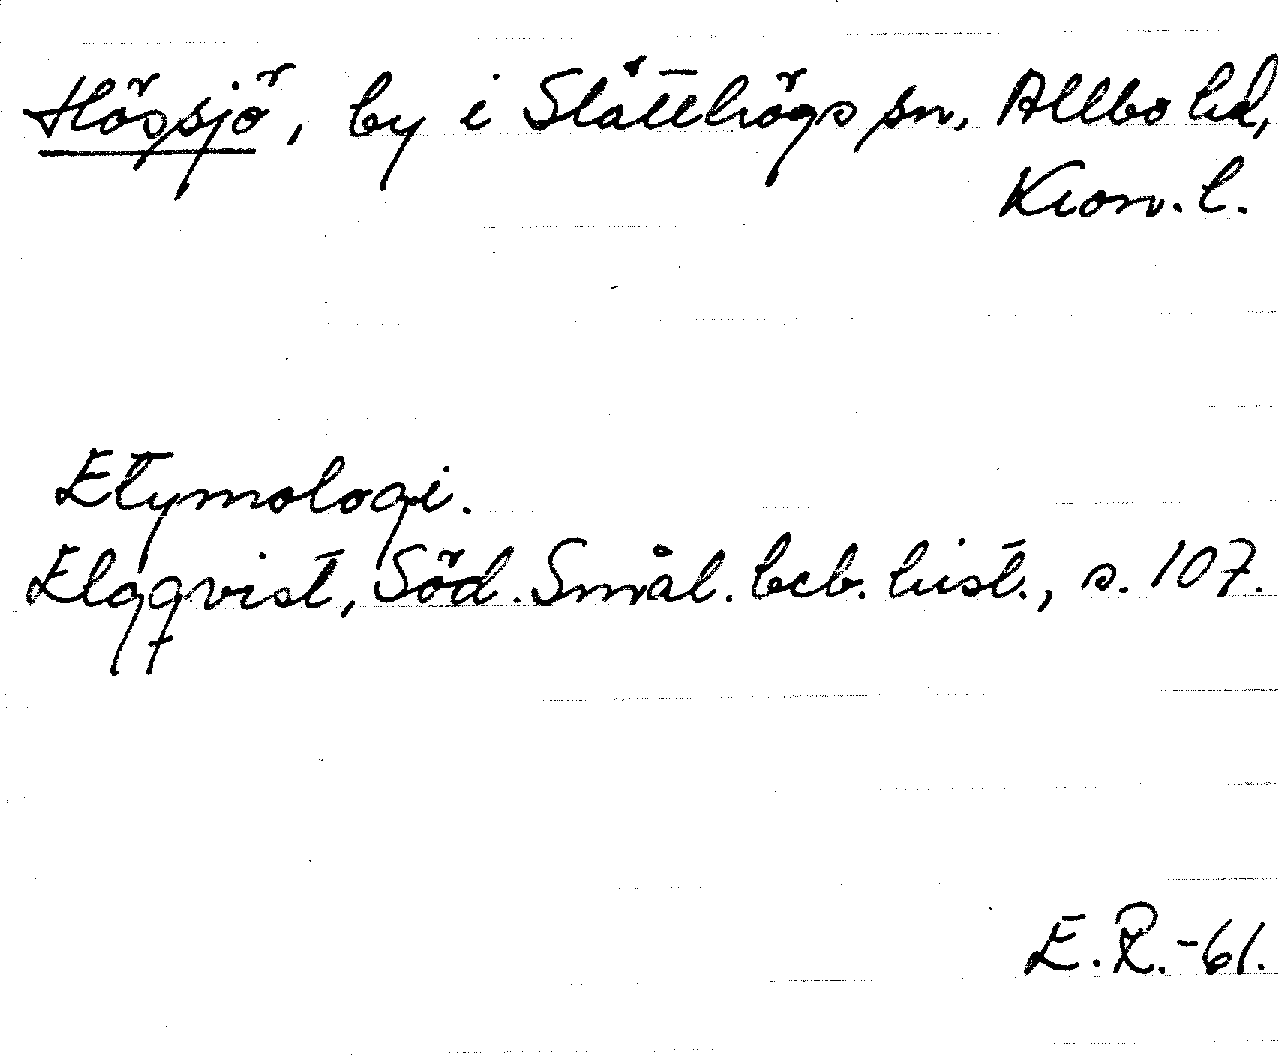 Hössjö, by i Slätthögs sn, Allbo hd,
Kron. l.
Etymologi.
Elgqvist, Söd. Smål. beb. hist., s. 107.
E.R.-61.